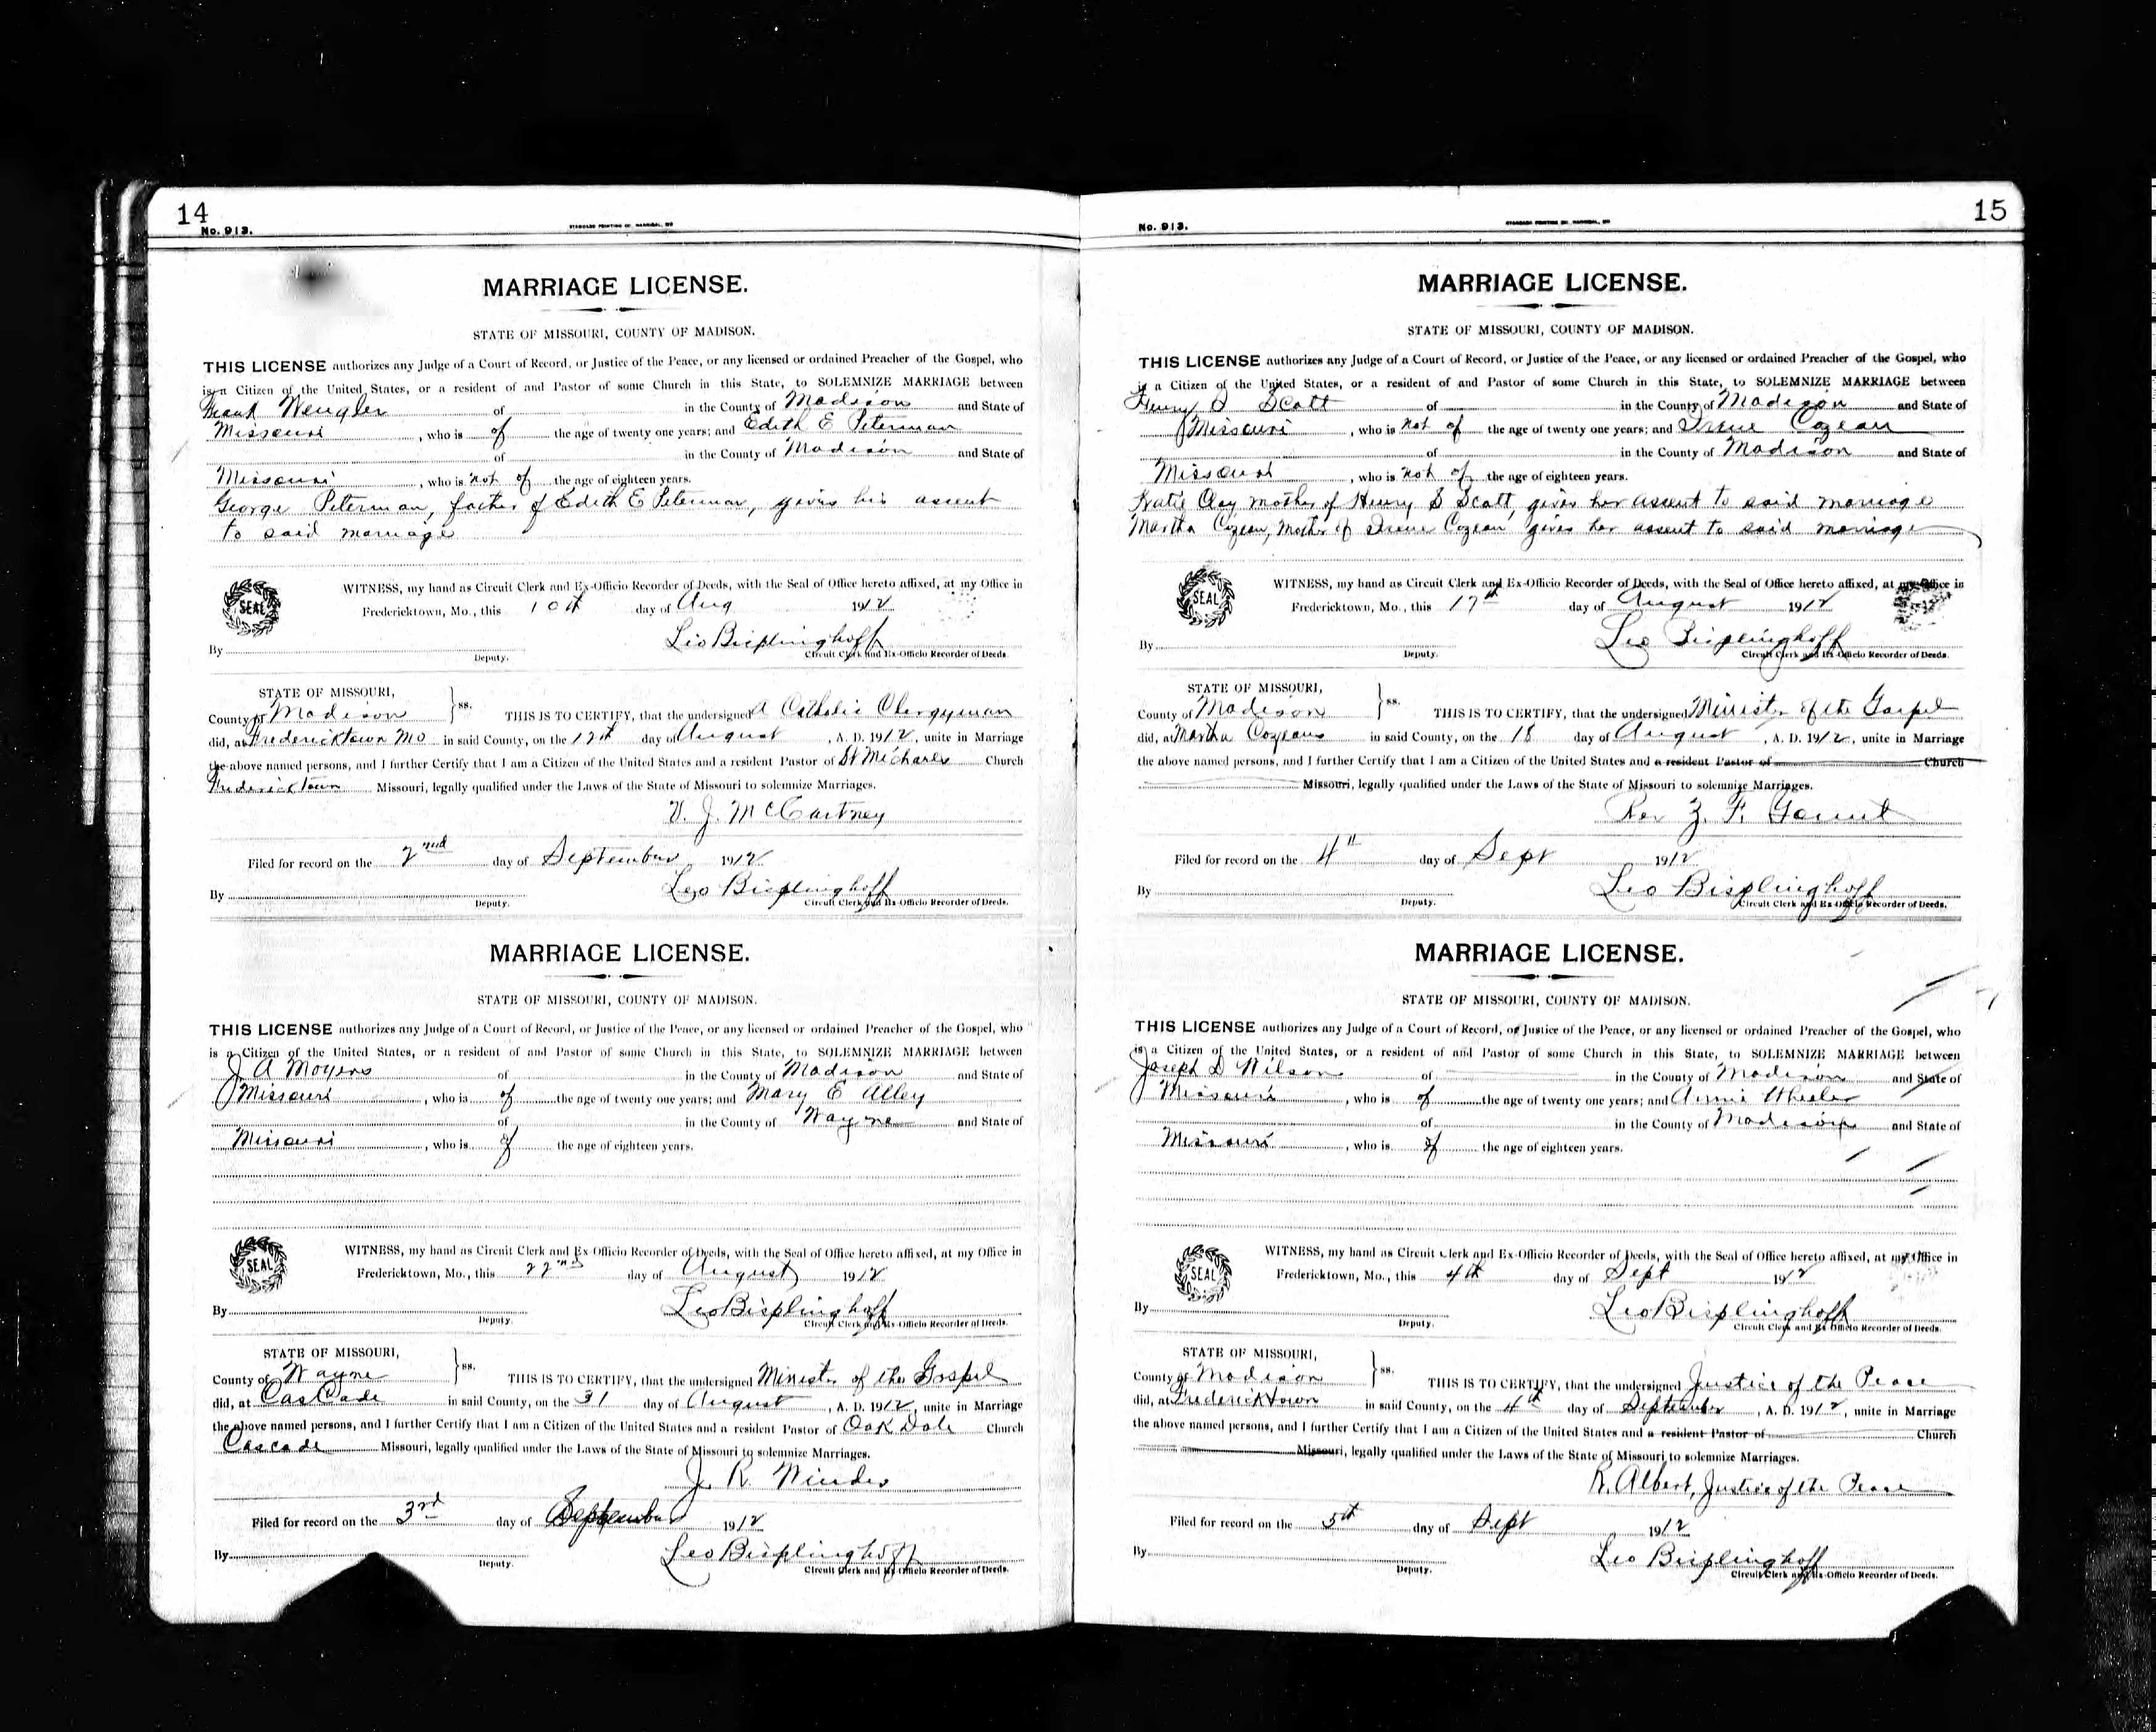 14
No. 913.
STANDARD PRINTING CO. HANNIBAL, MO
MARRIAGE LICENSE.
STATE OF MISSOURI, COUNTY OF MADISON.
THIS LICENSE authorizes any Judge of a Court of Record, or Justice of the Peace, or any licensed or ordained Preacher of the Gospel, who
is a Citizen of the United States, or a resident of and Pastor of some Church in this State, to SOLEMNIZE MARRIAGE between
Frank Wengler of in the County of Madison and State of
Missouri, who is of the age of twenty one years; and Edith E Peterman
of in the County of Madison and State of
Missouri, who is not of the age of eighteen years.
George Peterman, father of Edith E Peterman, gives his assent
to said marriage
SEAL
WITNESS, my hand as Circuit Clerk and Ex-Officio Recorder of Deeds, with the Seal of Office hereto affixed, at my Office in
Fredericktown, Mo., this 10th day of Aug 1912
Leo Bisplinghoff
By Deputy. Circuit Clerk and Ex-Officio Recorder of Deeds.
STATE OF MISSOURI,
County of Madison } ss. THIS IS TO CERTIFY, that the undersigned A Catholic Clergyman
did, at Fredericktown Mo in said County, on the 12th day of August, A. D. 1912, unite in Marriage
the above named persons, and I further Certify that I am a Citizen of the United States and a resident Pastor of St Michaels Church
Fredericktown Missouri, legally qualified under the Laws of the State of Missouri to solemnize Marriages.
V. J. McCartney
Filed for record on the 2nd day of September 1912
Leo Bisplinghoff
By Deputy. Circuit Clerk and Ex-Officio Recorder of Deeds.
MARRIAGE LICENSE.
STATE OF MISSOURI, COUNTY OF MADISON.
THIS LICENSE authorizes any Judge of a Court of Record, or Justice of the Peace, or any licensed or ordained Preacher of the Gospel, who
is a Citizen of the United States, or a resident of and Pastor of some Church in this State, to SOLEMNIZE MARRIAGE between
J A Moyers of in the County of Madison and State of
Missouri, who is of the age of twenty one years; and Mary E Alley
of in the County of Wayne and State of
Missouri, who is of the age of eighteen years.
SEAL
WITNESS, my hand as Circuit Clerk and Ex-Officio Recorder of Deeds, with the Seal of Office hereto affixed, at my Office in
Fredericktown, Mo., this 22nd day of August 1912
Leo Bisplinghoff
By Deputy. Circuit Clerk and Ex-Officio Recorder of Deeds.
STATE OF MISSOURI,
County of Wayne } ss. THIS IS TO CERTIFY, that the undersigned Minister of the Gospel
did, at CasCade in said County, on the 31 day of August, A. D. 1912, unite in Marriage
the above named persons, and I further Certify that I am a Citizen of the United States and a resident Pastor of Oak Dale Church
Cascade Missouri, legally qualified under the Laws of the State of Missouri to solemnize Marriages.
J. R. Winder
Filed for record on the 3rd day of September 1912
Leo Bisplinghoff
By Deputy. Circuit Clerk and Ex-Officio Recorder of Deeds.
15
No. 913.
STANDARD PRINTING CO. HANNIBAL, MO
MARRIAGE LICENSE.
STATE OF MISSOURI, COUNTY OF MADISON.
THIS LICENSE authorizes any Judge of a Court of Record, or Justice of the Peace, or any licensed or ordained Preacher of the Gospel, who
is a Citizen of the United States, or a resident of and Pastor of some Church in this State, to SOLEMNIZE MARRIAGE between
Henry S Scott of in the County of Madison and State of
Missouri, who is not of the age of twenty one years; and Irene Cozean
of in the County of Madison and State of
Missouri, who is not of the age of eighteen years.
Katie Clay mother of Henry S Scott, gives her assent to said marriage
Martha Cozean, Mother of Irene Cozean gives her assent to said marriage
SEAL
WITNESS, my hand as Circuit Clerk and Ex-Officio Recorder of Deeds, with the Seal of Office hereto affixed, at my Office in
Fredericktown, Mo., this 17th day of August 1912
Leo Bisplinghoff
By Deputy. Circuit Clerk and Ex-Officio Recorder of Deeds.
STATE OF MISSOURI,
County of Madison } ss. THIS IS TO CERTIFY, that the undersigned Minister of the Gospel
did, at Martha Cozeans in said County, on the 18 day of August, A. D. 1912, unite in Marriage
the above named persons, and I further Certify that I am a Citizen of the United States and a resident Pastor of Church
Missouri, legally qualified under the Laws of the State of Missouri to solemnize Marriages.
Rev Z. F.
Filed for record on the 4th day of Sept 1912
Leo Bisplinghoff
By Deputy. Circuit Clerk and Ex-Officio Recorder of Deeds.
MARRIAGE LICENSE.
STATE OF MISSOURI, COUNTY OF MADISON.
THIS LICENSE authorizes any Judge of a Court of Record, or Justice of the Peace, or any licensed or ordained Preacher of the Gospel, who
is a Citizen of the United States, or a resident of and Pastor of some Church in this State, to SOLEMNIZE MARRIAGE between
Joseph D Wilson of in the County of Madison and State of
Missouri, who is of the age of twenty one years; and Annie Wheeler
of in the County of Madison and State of
Missouri, who is of the age of eighteen years.
SEAL
WITNESS, my hand as Circuit Clerk and Ex-Officio Recorder of Deeds, with the Seal of Office hereto affixed, at my Office in
Fredericktown, Mo., this 4th day of Sept 1912
Leo Bisplinghoff
By Deputy. Circuit Clerk and Ex-Officio Recorder of Deeds.
STATE OF MISSOURI,
County of Madison } ss. THIS IS TO CERTIFY, that the undersigned Justice of the Peace
did, at Fredericktown in said County, on the 4th day of September, A. D. 1912, unite in Marriage
the above named persons, and I further Certify that I am a Citizen of the United States and a resident Pastor of Church
Missouri, legally qualified under the Laws of the State of Missouri to solemnize Marriages.
R. Albert, Justice of the Peace
Filed for record on the 5th day of Sept 1912
Leo Bisplinghoff
By Deputy. Circuit Clerk and Ex-Officio Recorder of Deeds.